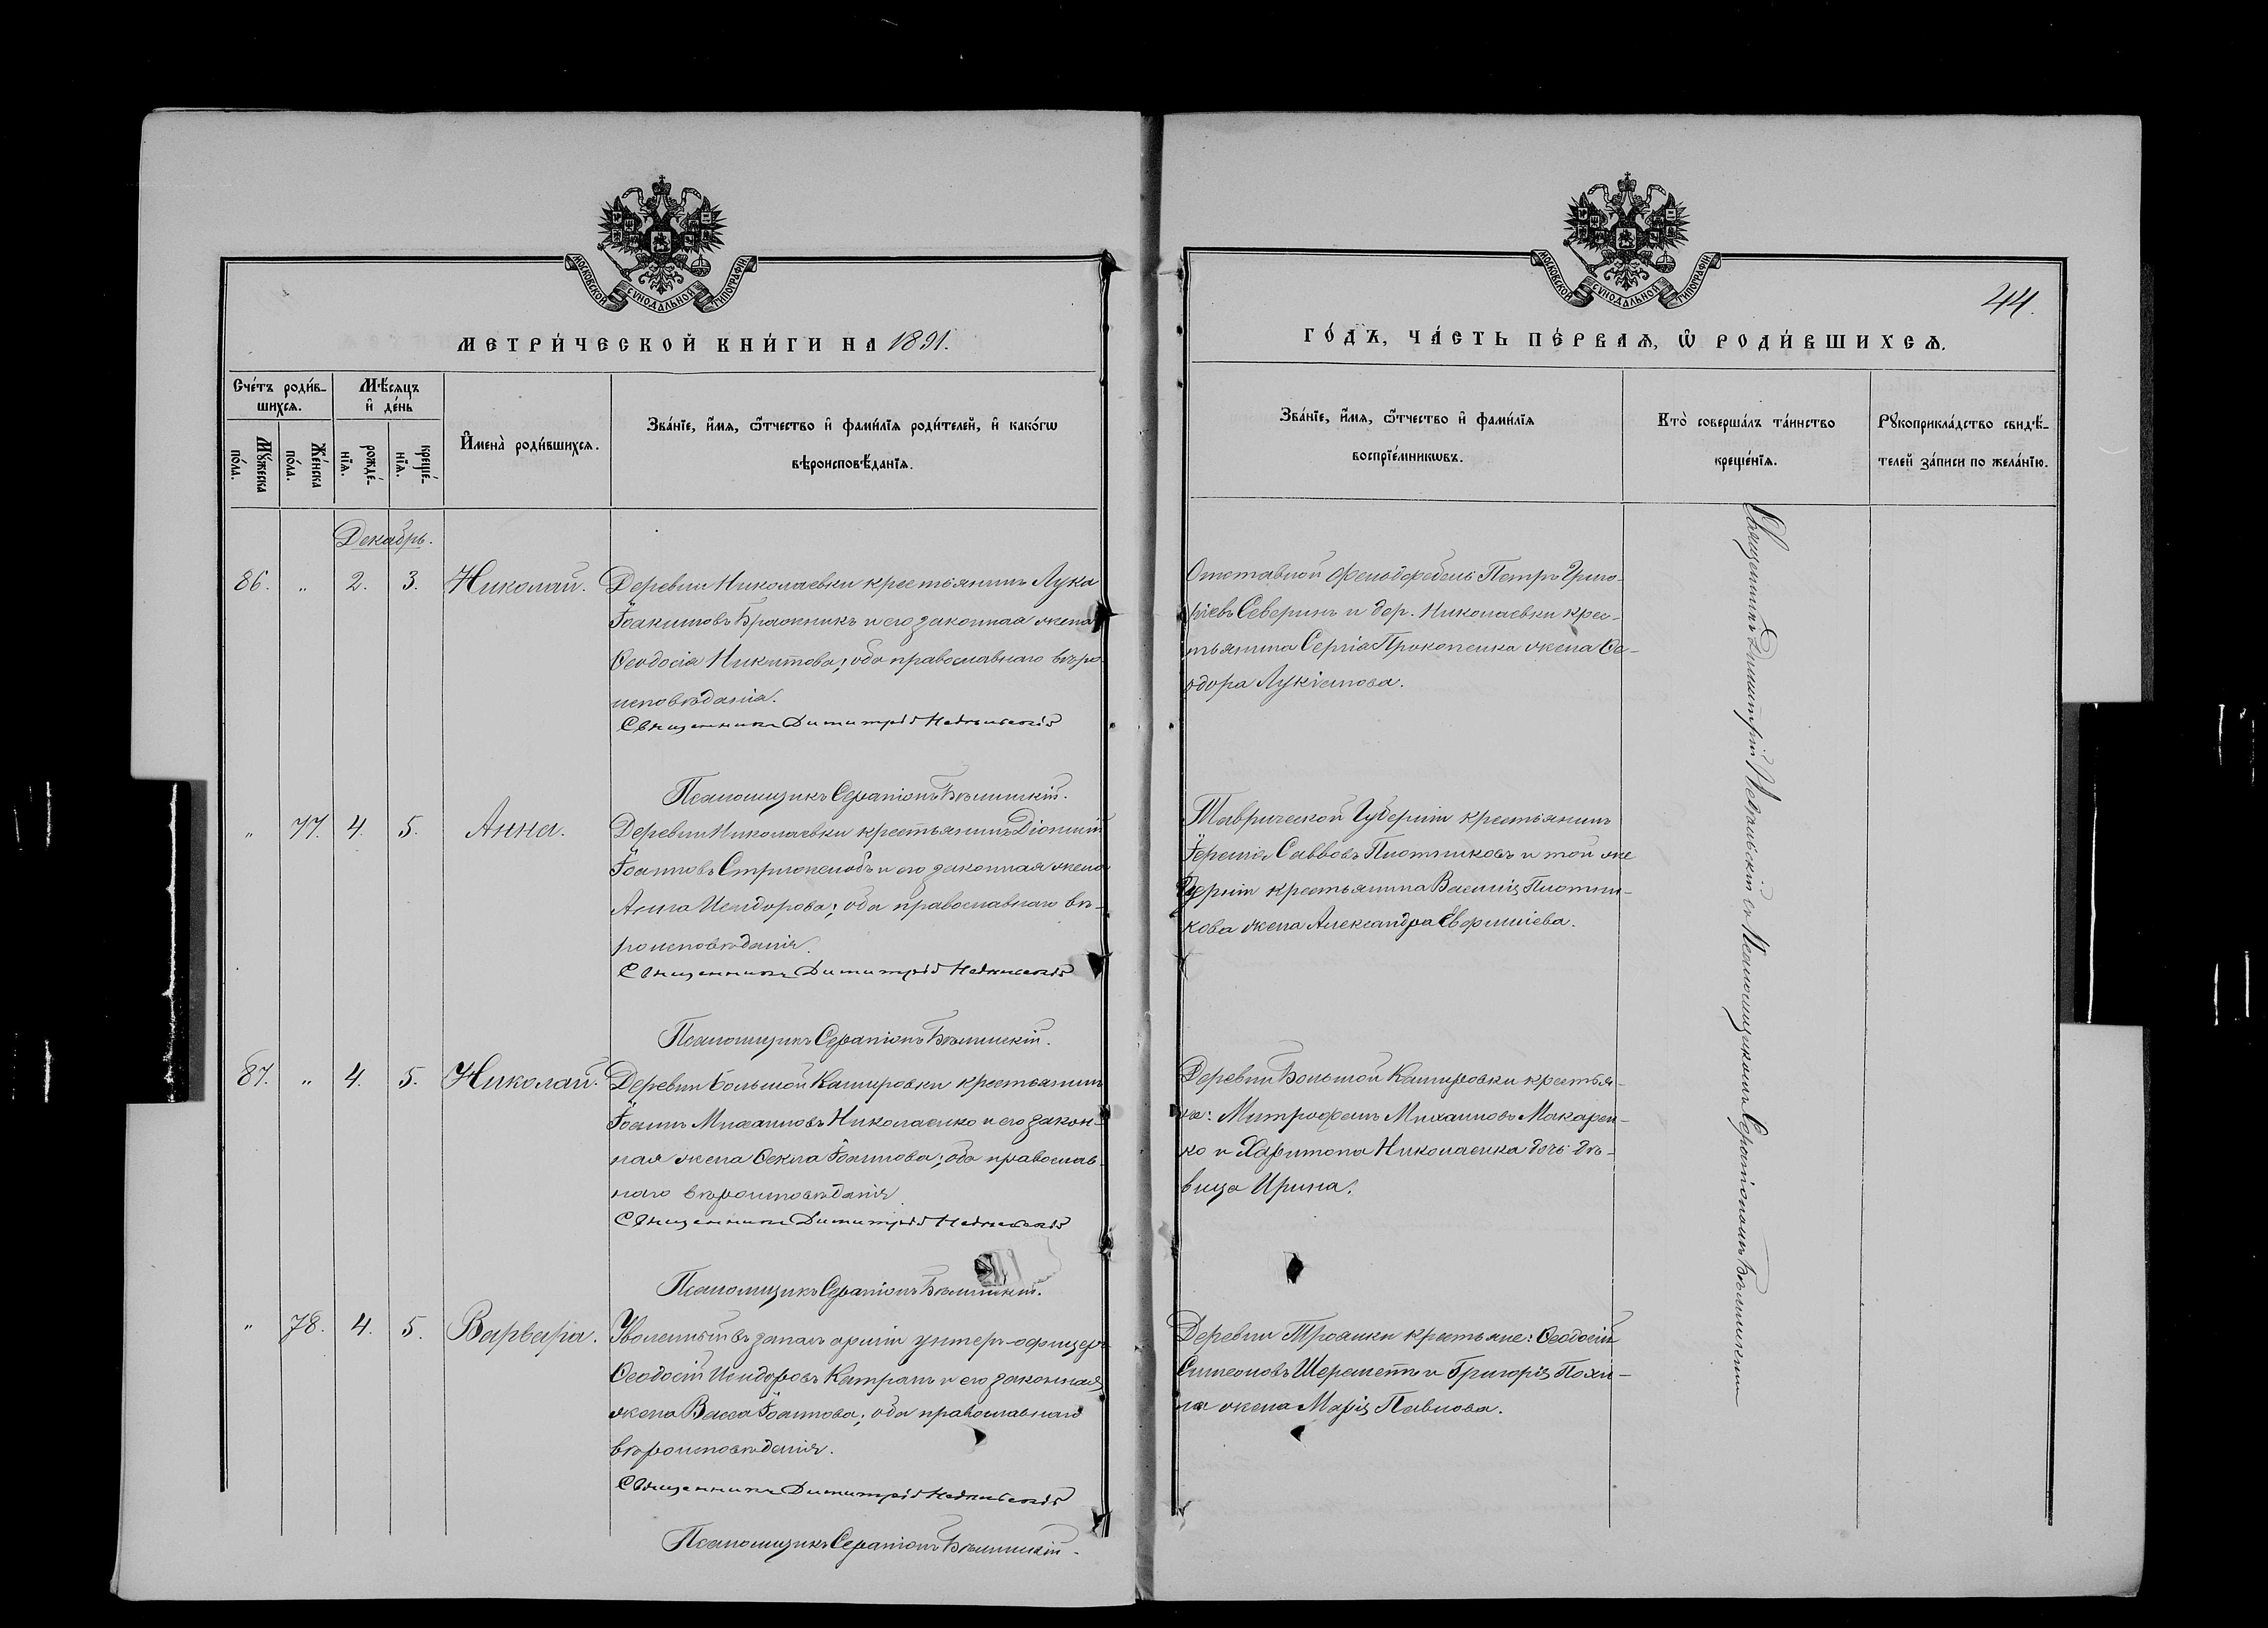 МОСКОВСКОЙ СѴНОДАЛЬНОЙ ТИПОГРАФІИ
МЕТРИ́ЧЕСКОЙ КНИ́ГИ НА 1891.
Сче́тъ роди́в-
шихсѧ.
Мѣ́сѧцъ
и҆ де́нь
Мꙋ́жеска
по́ла.
Же́нска
по́ла.
рожде́-
нїѧ.
креще́-
нїѧ.
И҆мена̀ роди́вшихсѧ.
Зва́нїе, и҆́мѧ, ѻ҆́тчество и҆ фами́лїѧ роди́телей, и҆ како́гѡ
вѣроисповѣ́данїѧ.
Декабрь.
86. " 2. 3. Николай.
Деревни Николаевки крестьянинъ Лука
Іоакимовъ Бражникъ и его законная жена
Ѳеодосія Никитова; оба православнаго вѣро
исповѣданія.
Священникъ Димитрій Недѣльскій
Псаломщикъ Серапіонъ Бѣлинскій.
" 77. 4. 5. Анна.
Деревни Николаевки крестьянинъ Діонисій
Іоанновъ и его законная жена
Анна Исидорова; оба православнаго вѣ-
роисповѣданія.
Священникъ Димитрій Недѣльскій
Псаломщикъ Серапіонъ Бѣлинскій.
87. " 4. 5. Николай.
Деревни Большой Кашировки крестьянинъ
Іоаннъ Михаиловъ Николаенко и его закон-
ная жена Ѳекла Іоаннова; оба православ-
наго вѣроисповѣданія
Священникъ Димитрій Недѣльскій
Псаломщикъ Серапіонъ Бѣлинскій.
" 78. 4. 5. Варвара.
Уволенный въ запасъ арміи унтеръ-офицеръ
Ѳеодосій Исидоровъ Катранъ и его законная
жена Васса Іоаннова; оба православнаго
вѣроисповѣданія.
Священникъ Димитрій Недѣльскій
Псаломщикъ Серапіонъ Бѣлинскій.
МОСКОВСКОЙ СѴНОДАЛЬНОЙ ТИПОГРАФІИ
44.
ГО́ДЪ, ЧА́СТЬ ПЕ́РВАѦ, Ѡ҆ РОДИ́ВШИХСѦ.
Зва́нїе, и҆́мѧ, ѻ҆́тчество и҆ фами́лїѧ
воспрїе́мникѡвъ.
Кто̀ соверша́лъ та́инство
креще́нїѧ.
Рꙋкоприкла́дство свидѣ́-
телей за́писи по жела́нїю.
Отставной фельдфебель Петръ Григо-
ріевъ Северинъ и дер. Николаевки крес-
тьянина Сергія Прокопенка жена Ѳе-
одора Лукіанова.
Таврической Губерніи крестьянинъ
Іеремія Саввовъ Плотниковъ и той же
Губерніи крестьянина Василія Плотни-
кова жена Александра Евфиміева.
Деревни Большой Кашировки крестья-
не: Митрофанъ Михаиловъ Макарен-
ко и Харитона Николаенка дочь дѣ-
вица Ирина.
Деревни Трояники крестьяне: Ѳеодосій
Симеоновъ Шереметъ и Григорія Похи-
ла жена Марія Павлова.
Священникъ Димитрій Недѣльскій съ Псаломщикомъ Серапіономъ Бѣлинскимъ